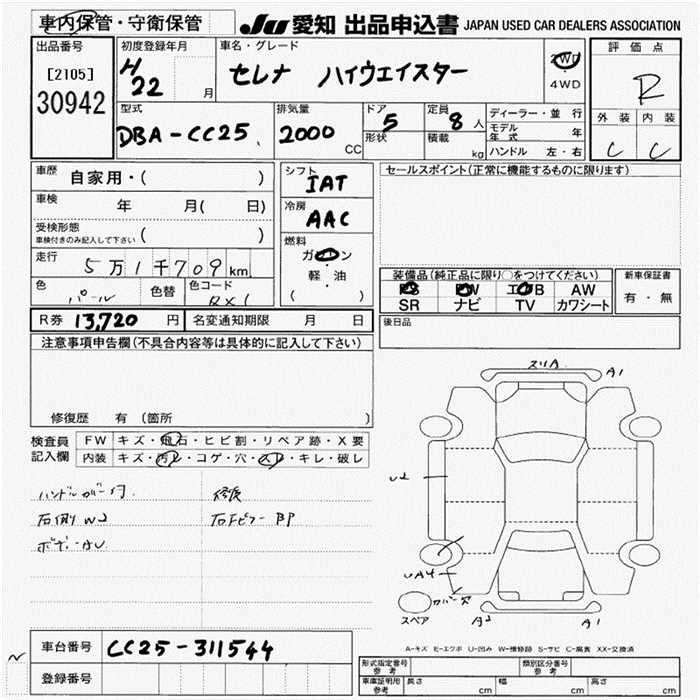 車内保管・守衛保管
JU 愛知 出品申込書 JAPAN USED CAR DEALERS ASSOCIATION
出品番号
[2105]
30942
初度登録年月
H 22 月
車名・グレード
セレナ ハイウェイスター
2WD
4WD
評価点
R
外装 内装
C C
型式
DBA-CC25
排気量
2000 CC
ドア
5
形状
定員
8 人
積載 kg
ディーラー・並行
モデル年式 年
ハンドル 左・右
車歴 自家用・( )
車検 年 月( 日)
受検形態
車検付きのみ記入して下さい ( )
走行 5万1千709 km
色 パール 色替 色コード RX1
シフト
IAT
冷房
AAC
燃料
ガソリン
軽・油
( )
セールスポイント(正常に機能するものに限ります)
装備品(純正品に限り○をつけてください)
PS PW エアB AW
SR ナビ TV カワシート
新車保証書
有・無
R券 13,720 円 名変通知期限 月 日
後日品
注意事項申告欄(不具合内容等は具体的に記入して下さい)
修復歴 有 〔箇所 〕
検査員記入欄
FW キズ・飛石・ヒビ割・リペア跡・X要
内装 キズ・汚レ・コゲ・穴・スレ・キレ・破レ
ハンドルカバー付 修復
右側 W2 右Fピラー BP
ボデーAU
スリA A1
U2
UA4
カバー欠
スペア
A2 A1
A-キズ E-エクボ U-凹み W-補修跡 S-サビ C-腐食 XX-交換済
車台番号 CC25-311544
登録番号
形式指定番号 参考
類別区分番号 参考
車庫証明用 参考 長さ cm 幅 cm 高さ cm